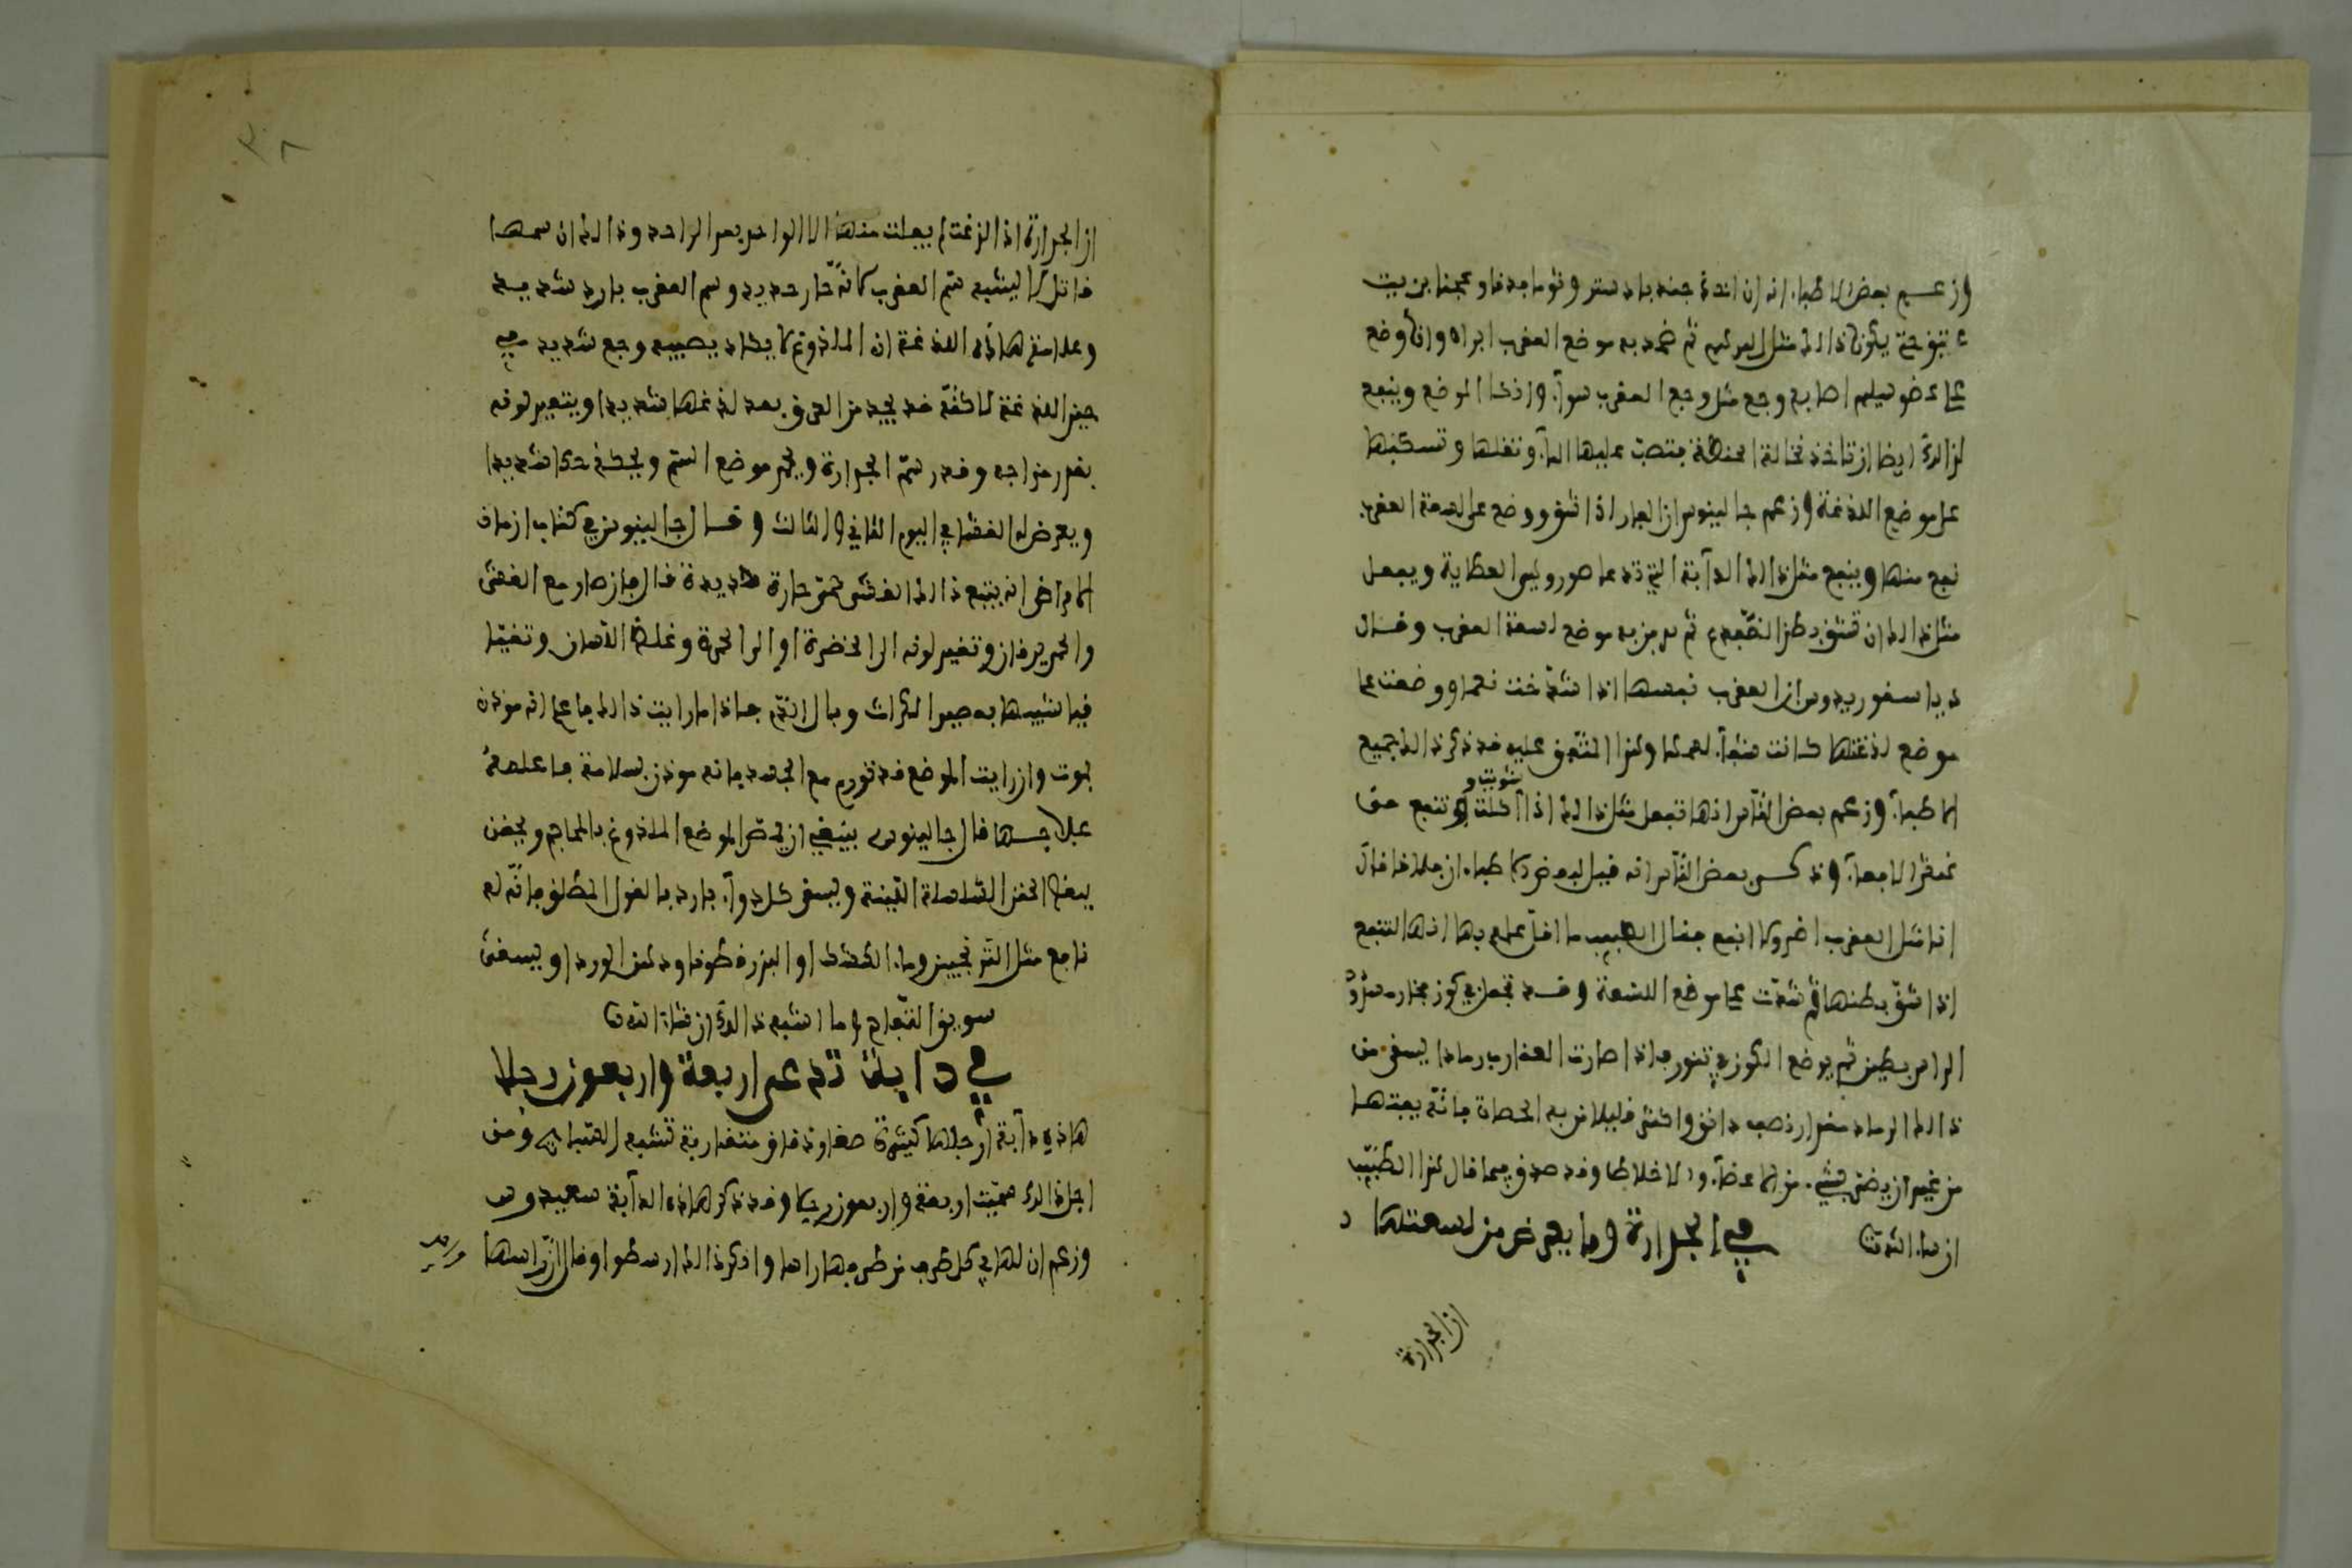 وزعم بعض الاطباء انه ان اخذ جندبادستر وثوما مدقا وعجنا بزيت
عتيق حتى يكون ذالك مثل المرهم ثم ضمد به موضع العقرب ابراه وان وضع
على عضو سليم اصابه وجع مثل وجع العقرب سوآ وذكا الموضع وينفع
من ذالك ايضا ان تاخذ نخالة الحنطة فتصب عليها المآ وتغلها وتسكبها
على موضع اللدغة وزعم جالينوس ان الفار اذا شق ووضع على لسعة العقرب
نفع منها وينفع مثل ذالك الدآبة التي تدعا صورو ليس العظاية ويفعل
مثل ذالك ان تشق بطن الضفدع ثم يرمز به موضع لسعة العقرب وقال
دياسفوريدوس ان العقرب نفسها اذا شدخت نعما ووضعت على
موضع لدغتها كانت شفآ لعملها وهذا المتفق عليه قد ذكر ذالك جميع
الاطبآ وزعم بعض الناس انها تفعل مثل ذالك اذا اكلت شويت وتنفع من
نهش الافعآ وذكر بعض الناس انه قيل لبعض الاطباء ان فلانا قال
انا مثل العقرب اضر ولا انفع فقال الطبيب ما اقل علمه بها انها لتنفع
اذا شق بطنها ثم شدت على موضع اللسعة وقد تجعل في كوز فخار مسدود
الراس بطين ثم يوضع الكوز في تنور فاذا صارت العقارب رمادا يسقى من
ذالك الرماد مقدار نصف دانق واكثر قليلا من به الحصاة فانه يفتتها
من غير ان يضر بشيء من الاعضآ والاخلاط وقد صدق فيما قال هذا الطبيب
ان شاء الله
في الجرارة وما يعرض من لسعتها
ان الجرارة
ان الجرارة اذا لدغت لم يفلت منها الا الواحد بعد الواحد وذالك ان سمها
قاتل لا يشبه سم العقرب كانه حار حديد وسم العقرب بارد شديد
وعلامة هاذه اللدغة ان الملدوغ لا يكاد يصيبه وجع شديد في
حين اللدغة لاكنه قد يجد من الغد بعد لدغها شديدا ويتغير لونه
بقدر مزاجه وقدر سم الجرارة ويحمر موضع السم ويحكه حكا شديدا
ويعرض له الغشى في اليوم الثاني والثالث وقال جالينوس في كتاب ازمان
الامراض انه يتبع ذالك الغشى حمى حارة شديدة قال فان صار مع الغشى
واحمر يرقان وتغير لونه الى الخضرة او الى الحمرة وغلظ اللسان وتقيا
قيا شبيها بعصير الكراث وبال الدم فاذا ما رايت ذالك فاعلم انه موذن
بموت وان رايت الموضع قد تورم مع الجسد فانه موذن بسلامة فاعلمه
علاجها قال جالينوس ينبغي ان يمص الموضع الملدوغ بالمحاجم ويحقن
ببعض الحقن الساهلة اللينة ويسقى كل دوآ بارد بالقول المطلق فانه له
نافع مثل الترنجبين وماء القثاء او البزرقطونا ودهن الورد او يسقى
سويق التفاح وما اشبه ذالك ان شاء الله
في دابة تدعى اربعة واربعون رجلا
هاذه دآبة ارجلها كثيرة صغار دقاق متقاربة تشبه الهتباي ومن
اجل ذالك سميت اربعة واربعون رجلا وقد ذكر هاذه الدآبة سعيدوس
وزعم ان لها في كل طرف من طرفيها راسا وانكر ذالك ارسطوا وقال ان راسها